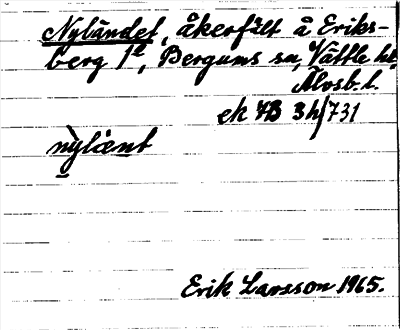 Nylandet, åkerfält å Eriks-
berg 1², Bergums sn, Vättle hd,
Älvsb. l.
ek 7B 3h/731
nylænt
Erik Larsson 1965.